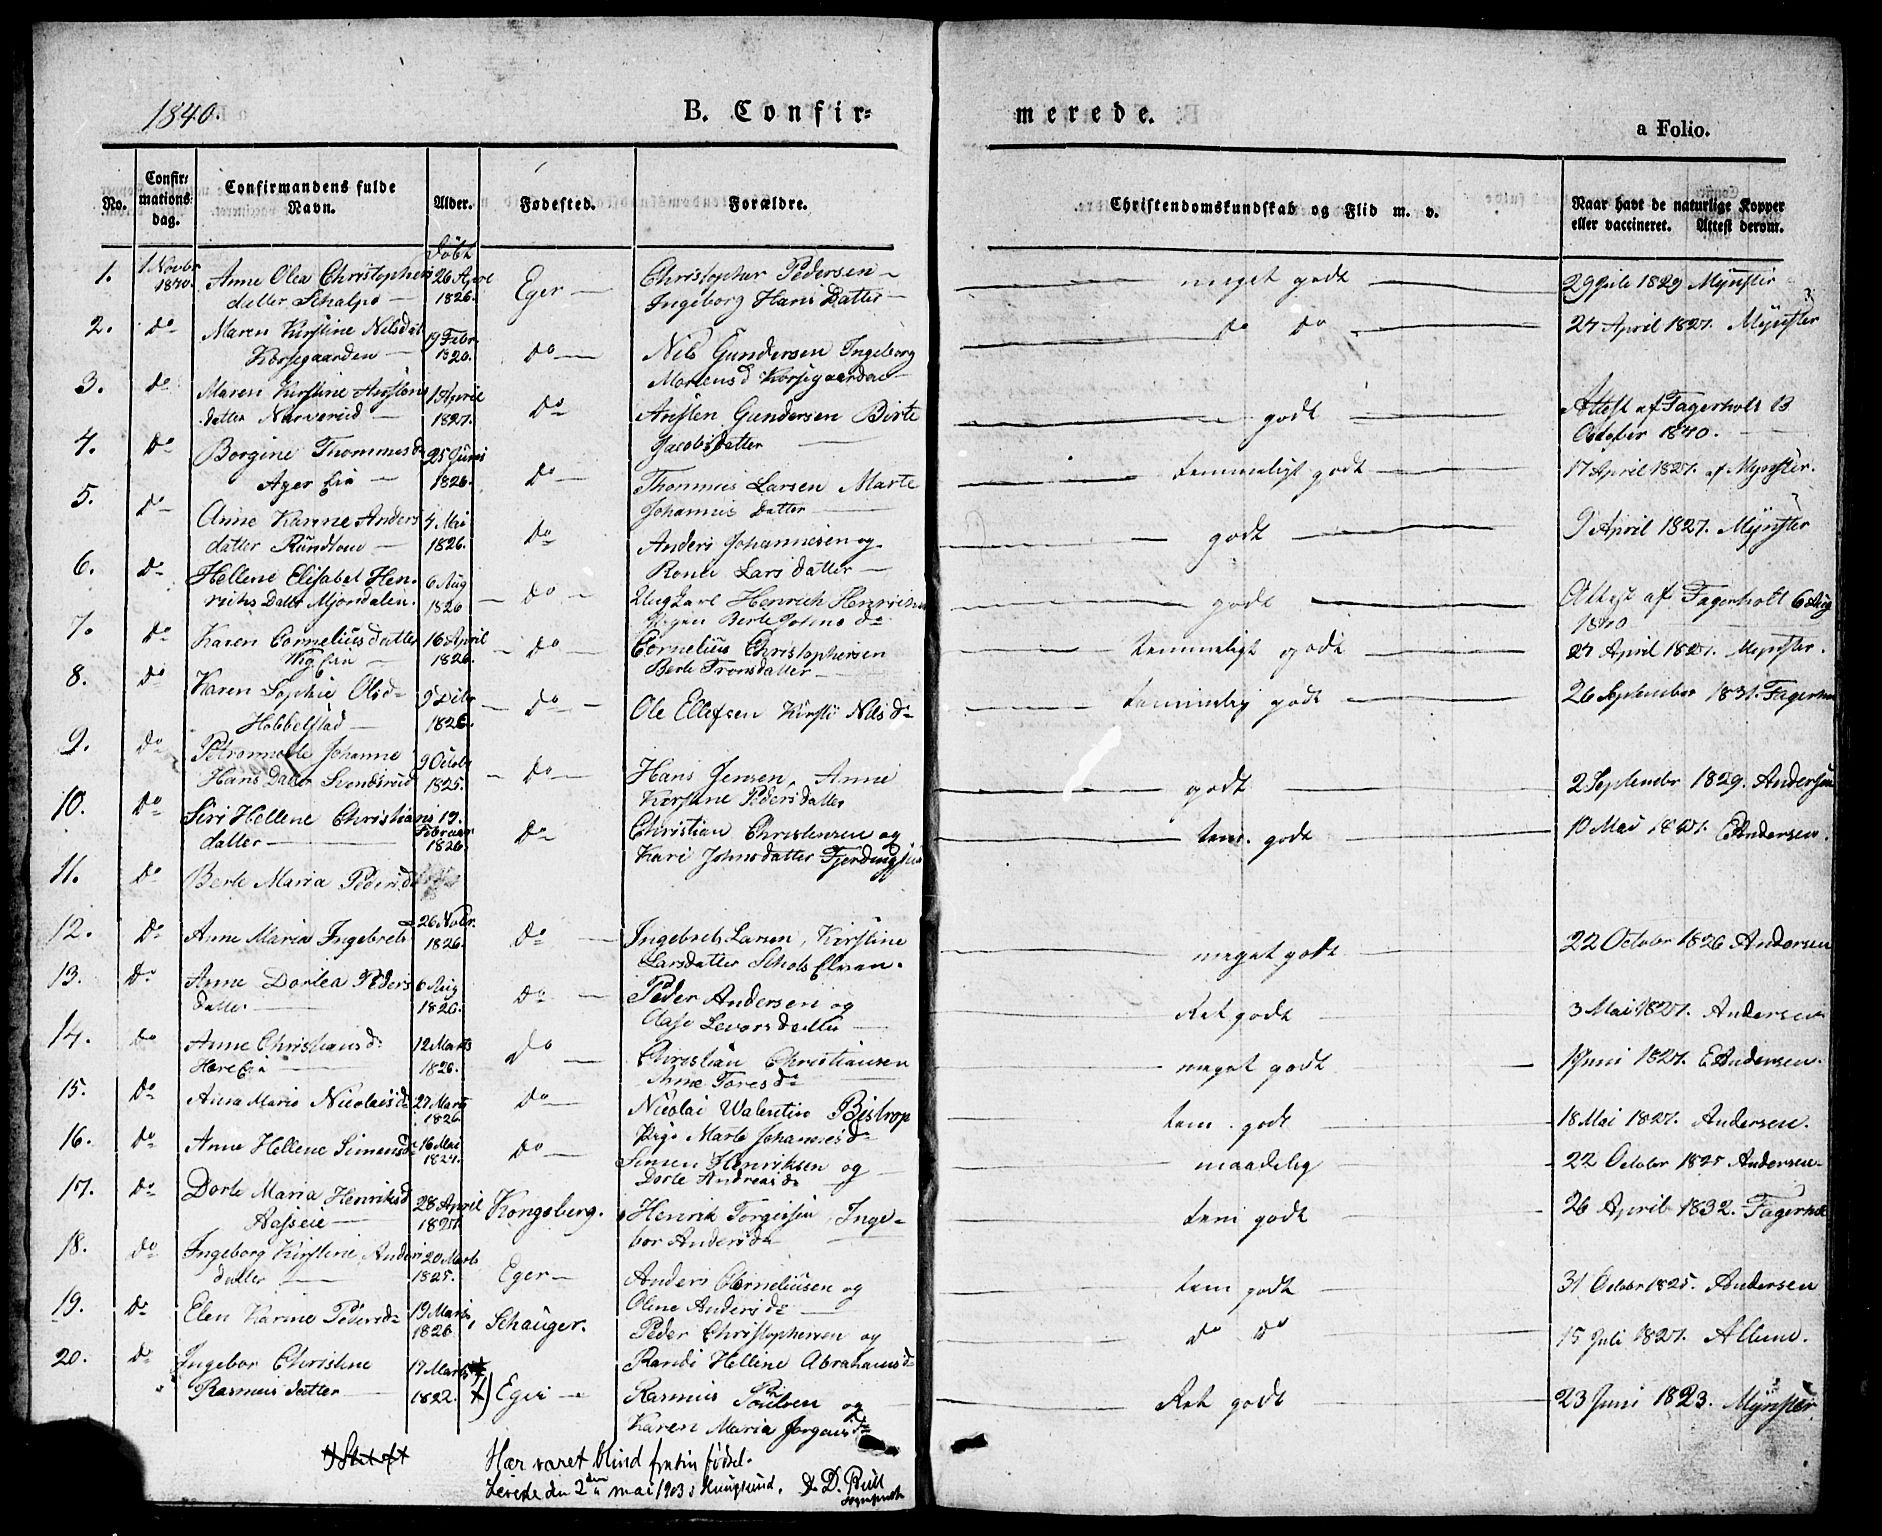 1840.
B. Confir=
merede.
a Folio.
No.
Confir=
mations=
dag.
Confirmandens fulde
Navn.
Alder.
Fødested.
Forældre.
Christendomskundskab og Flid m. v.
Naar havt de naturlige Kopper
eller vaccineret. Attest derom.
Döbt
1. 1 Novbr 1840. Anne Olea Christophers 26 Apr 1826. Eger Christopher Pedersen
datter Ingeborg Hans Datter
meget godt
1829 Mynster
2. Do Maren Kirstine Nilsdat 19 Febr Do Nils Gundersen Ingeborg
Korsgaarden Mortensd Korsgaarden
do do
24 April 1827. Mynster
3. Do Maren Kirstine 1 April 1827. Do Gundersen Birte
datter Narverud Jacobsdatter
godt
Attest af Fagerholt 13
October 1840.
4. Do Borgine Thommesd 25 Juni 1826. Do Thommes Larsen Marte
Ager Eie Johannis Datter
temmeligt godt
17 April 1827. af Mynster.
5. Do Anne Karine Anders 4 Mai 1826. Do Anders Johannesen og
datter Lars datter
godt
9 April 1827. Mynster
6. Do Hellene Elisabet Hen- 6 Aug 1826 Do Henrich
richs Datter Mjøndalen.
godt
Attest af Fagerholt 6 Aug
1840
7. Do Karen Cornelius datter 16 April 1826. Do Cornelius Christophersen
Eie Berte Tronsdatter
temmeligt godt
24 April 1827. Mynster.
8. Do Karen Sophie Olsd 9 1826. Do Ole Ellefsen Kirsti Nils d
Hobbelstad
temmelig godt
26 September 1831.
9. Do Johanne 9 Octobr 1825. Do Hans Jensen, Anne
Hans Datter Kirstine Peders datter
godt
2 September 1829. Andersen
10. Do Siri Hellene Christians 19. Februar 1826. Do Christian Christensen og
datter Kari Johnsdatter
tem. godt
10 Mai 1827. Andersen.
11. Do Berte Maria Peders d
12. Do Anne Maria Ingebrets 26 Novbr. 1826. Do Ingebret Larsen, Kirstine
Larsdatter
meget godt
22 October 1826 Andersen
13. Do Anne Dortea Peders 6 Aug 1826. Do Peder Andersen og
datter Aase
Ret godt
3 Mai 1827. Andersen
14. Do Anne Christians d 12 Marts 1826. Do Christian Christiansen
Anne Tores d
meget godt
Juni 1827. Andersen.
15. Do Anna Maria Nicolais d 27 Marts 1826. Do Nicolai Valentin Bistrop
Pige Marte Johannes d
tem. godt
18 Mai 1827. Andersen.
16. Do Anne Hellene Simens d 16 Mai Do Simen Henriksen og
Dorte Andreas d
maadelig
22 Octobr 1825 Andersen
17. Do Dorte Maria Henriks d 28 April Kongsberg. Henrik Torgersen, Inge-
Aaseie bor Anders d
tem godt
26 April 1832.
18. Do Ingeborg Kirstine Anders 20 Marts 1825. Eger Anders Corneliusen og
datter Oline Anders d
tem godt
31 Octobr 1825. Andersen
19. Do Elen Karine Peders d 19 Marts 1826. Schauger. Peder Christophersen og
Randi Helline Abrahams d
do do
15 Juli 1827.
20. Do Ingebor Christine 17 Marts 1822. x) Eger Rasmus Poulsen og
Rasmus datter Karen Maria Jørgens d
Ret godt
23 Juni 1823. Mynster
Har været blind fra sin fødsel.
den 2den mai 1903 i Haugsund. D. Bull